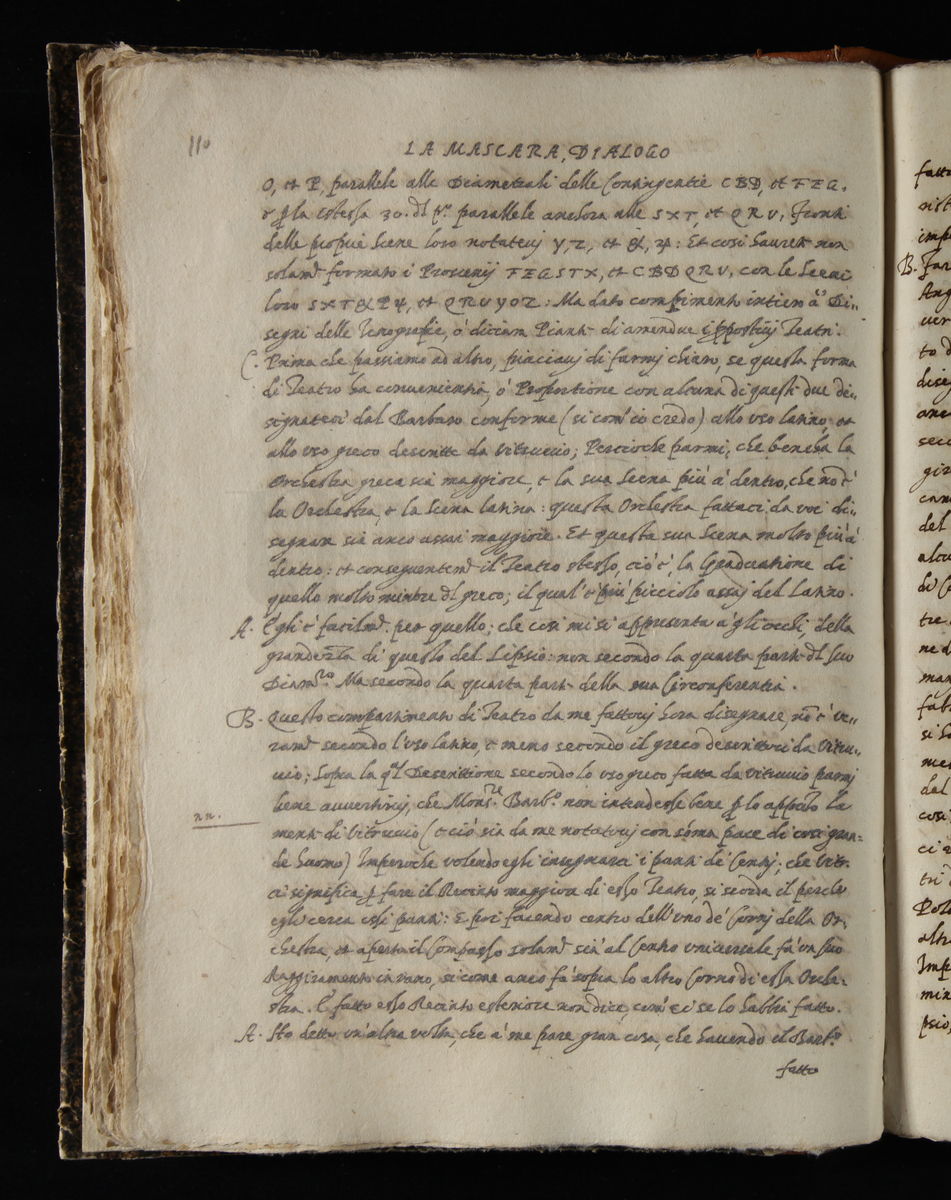 110
LA MASCARA, DIALOGO
O, et P, parallele alle Diametrali delle Contingentie CBD, et FEG.
la istessa 30. dl pº. parallele anchora alle SXT, et QRV, fronti
delle propie Scene loro notatevj Y, Z, et &, Ψ: Et cosi havrete non
solamte formato i Proscenij FEGSTX, et CBDQRV, con le Scene
loro SXT&PΨ, et QRVYOZ: Ma dato compimento intiero a' Di..
segni delle Icnografie, ò diciam Piante di amendue i ppostivj Teatri.
C. Prima che passiamo ad altro, piaciavj di farmj chiaro, se questa forma
di Teatro ha convenientia, ò Proportione con alcuna di questi due de..
signateci dal Barbaro conforme (si com' io credo) allo uso latino, et
allo uso greco descritte da Vitruvio; Percioche parmi, che benche la
Orchestra greca sia maggiore, e la sua Scena più à dentro, che nō è
la Orchestra, e la scena latina: questa Orchestra fattaci da voi di..
segnare sia anco assai maggiore. Et questa sua Scena molto più à
dentro: et conseguentemte il Teatro stesso, ciò è, la Graduatione di
quello molto minore dl greco; il qual' è più picciolo assaj del Latino.
A. Egli è facilmte per quello; che cosi mi si appresenta à gli occhi, della
grandezza di questo del Lipsio: non secondo la quarta parte dl suo
Diamro Ma secondo la quarta parte della sua Circonferentia.
B. Questo compartimento di Teatro da me fattovj hora disegnare nō è ve..
ramte secondo l'uso latino, e meno secondo il greco descrittoci da Vitru..
vio; sopra la ql Descrittione secondo lo uso greco fatta da Vitruvio parmj
bene avvertirvj, che Monsre Barbo non intendesse bene p lo appūto la
nn.
mente di Vitruvio (e ciò sia da me notatovj con sōma pace di cosi gran=
de huomo) Imperoche volendo egli insegnarci i punti de' Centrj; che Vitr.
ci significa p fare il Recinto maggiore di esso Teatro, si scorda il perche
egli cerca essi punti: E poi facendo centro dell'uno de' Cornj della Or,
chestra, et aperto il Compasso solamte sin' al Centro universale fà un suo
Raggiramento in vano, si come anco fà sopra lo altro Corno di essa Orche-
stra. E fatto esso Recinto esteriore non dice, com' ei se lo habbi fatto.
A. Ho detto un'altra volta, che à me pare gran cosa, che havendo il Barbo
fatto